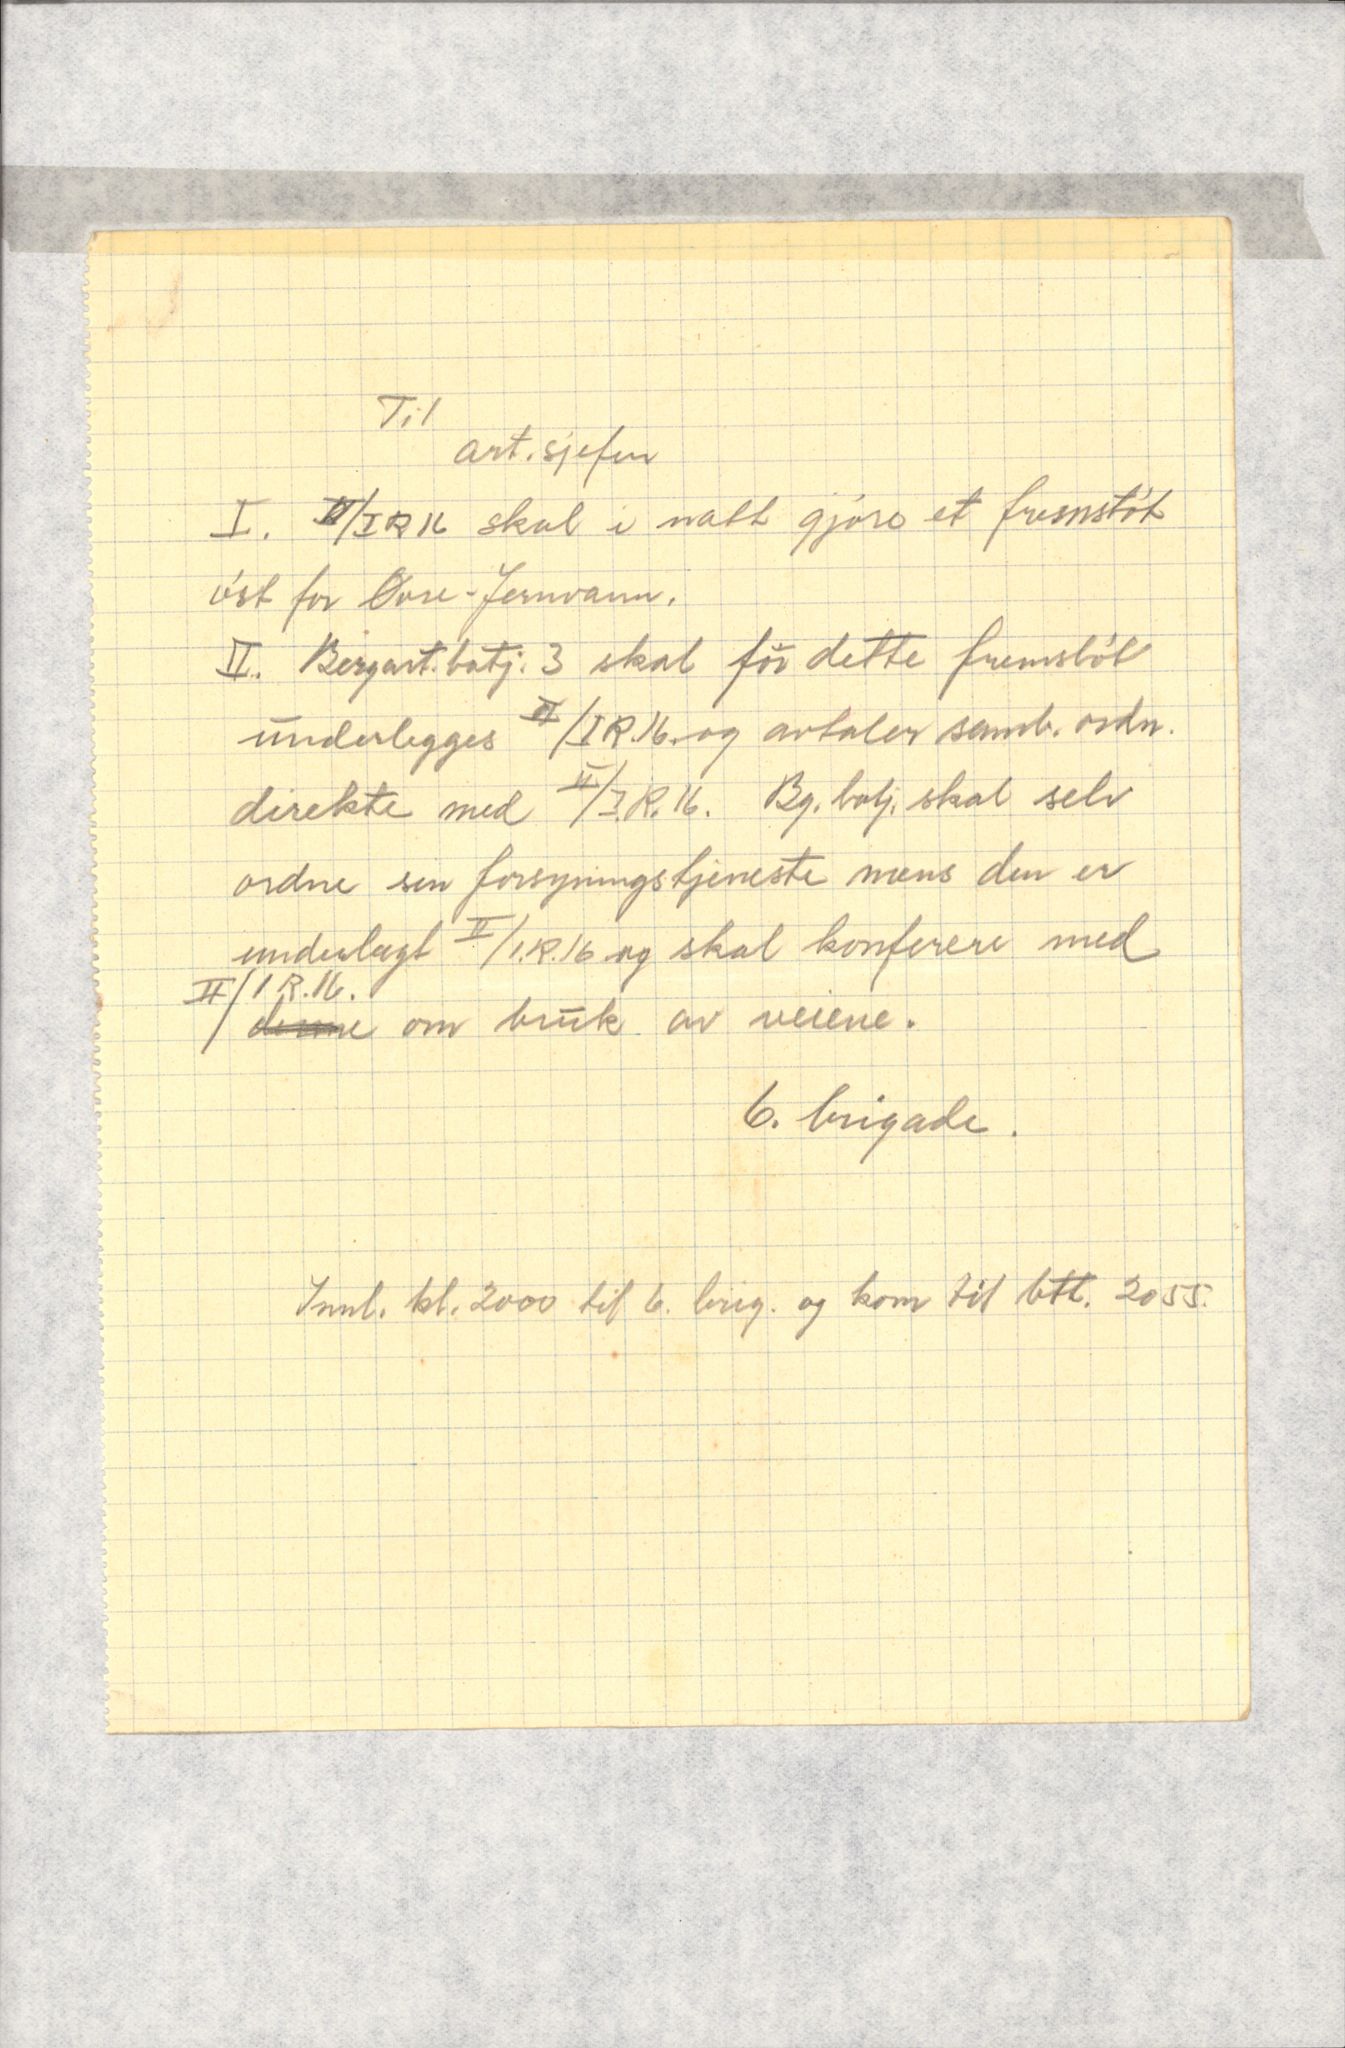 Til
art. sjefen
I. II/I R 16 skal i natt gjøre et fremstøt
øst for Øvre-Jernvann.
II. Bergart. batj. 3 skal för dette fremstøt
underlegges II/I R. 16. og avtaler samb. ordn.
direkte med II/I. R. 16. Bg. batj. skal selv
ordne sin forsyningstjeneste mens den er
underlagt II/I. R. 16 og skal konferere med
II/I R. 16.
denne om bruk av veiene.
6. brigade.
Innl. kl. 2000 til 6. brig. og kom til btt. 2055.